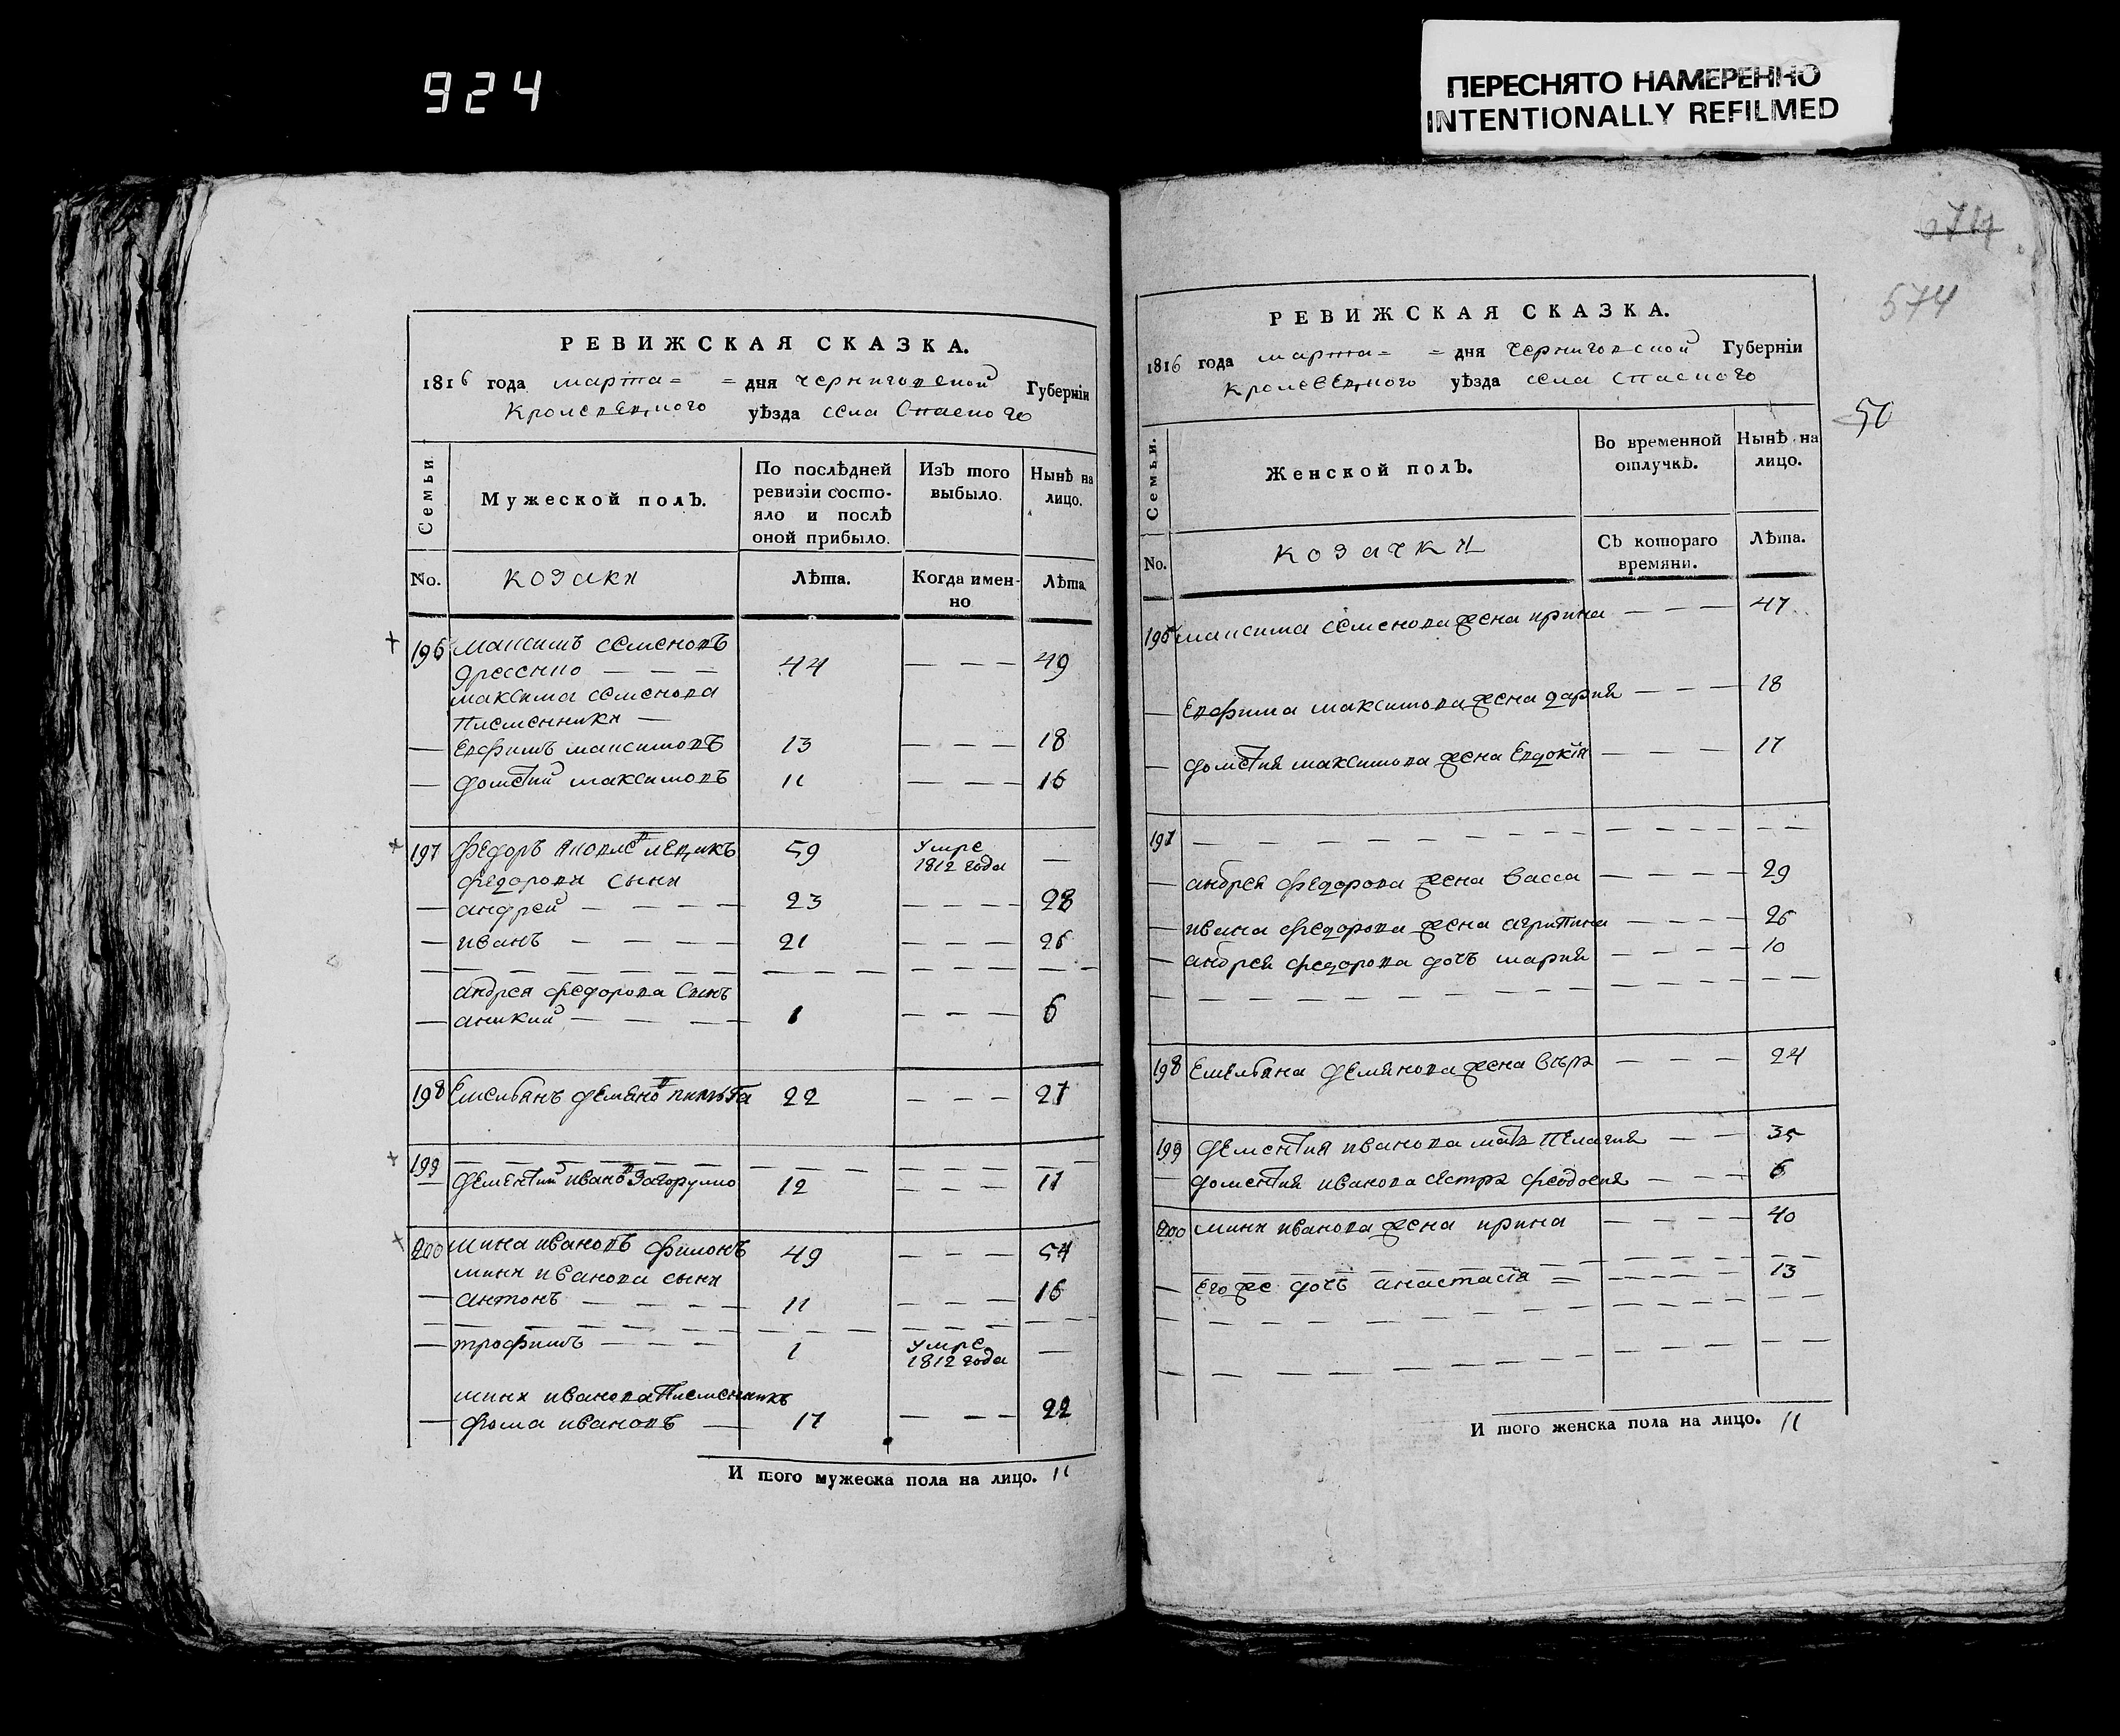 924
ПЕРЕСНЯТО НАМЕРЕННО
INTENTIONALLY REFILMED
574
50
РЕВИЖСКАЯ СКАЗКА.
1816 года марта = = дня Черниговской Губерніи
Кролевецкого уѣзда села Спаского
Семьи.
Мужеской полъ.
По послѣдней ревизіи состо-
яло и послѣ
оной прибыло.
Изъ того
выбыло.
Нынѣ на
лицо.
No.
козаки
Лѣта.
Когда имен-
но
Лѣта
196 Максимъ Семеновъ
44 — — — 49
максима семенова
племенники —
— Евфимъ максимовъ 13 — — — 18
— дометій максимовъ 11 — — — 16
197 Федоръ 59 умре
1812 года —
федорова сыни
— андрей — — — — 23 — — — — 28
— иванъ — — — — 21 — — — — 26
андрея федорова сынъ
— аникий — — — — 1 — — — 6
198 Емельянъ Демянов 22 — — — 27
199
— Дементий иванов Загорулко 12 — — — 17
200 мина ивановъ филонъ 49 — — — 54
мини иванова сыни
— антонъ — — — — 11 — — — 16
— трофимъ — — — — 1 умре
1812 года —
мини иванова племенникъ
— фома ивановъ — 17 — — — 22
И того мужеска пола на лицо. 11
РЕВИЖСКАЯ СКАЗКА.
1816 года марта = = дня Черниговской Губерніи
Кролевецкого уѣзда села Спаского
Семьи.
Женской полъ.
Во временной
отлучкѣ.
Нынѣ на
лицо.
No.
козачки
Съ котораго
времяни.
Лѣта.
196 максима семенова жена ирина — — — 47
— Евфима максимова жена дария — — — 18
— дометия максимова жена Евдокія — — — 17
197
— андрея федорова жена васса — — — — 29
— ивана федорова жена агрипина — — — — 26
— андрея федорова дочъ мария — — — 10
198 Емельяна демянова жена — — — 24
199 Дементия иванова Пелагия — — 35
— доментия иванова сестра феодосия — — — 6
200 мини иванова жена ирина — — — — 40
— Его же дочъ анастасія = — — — — 13
И того женска пола на лицо. 11